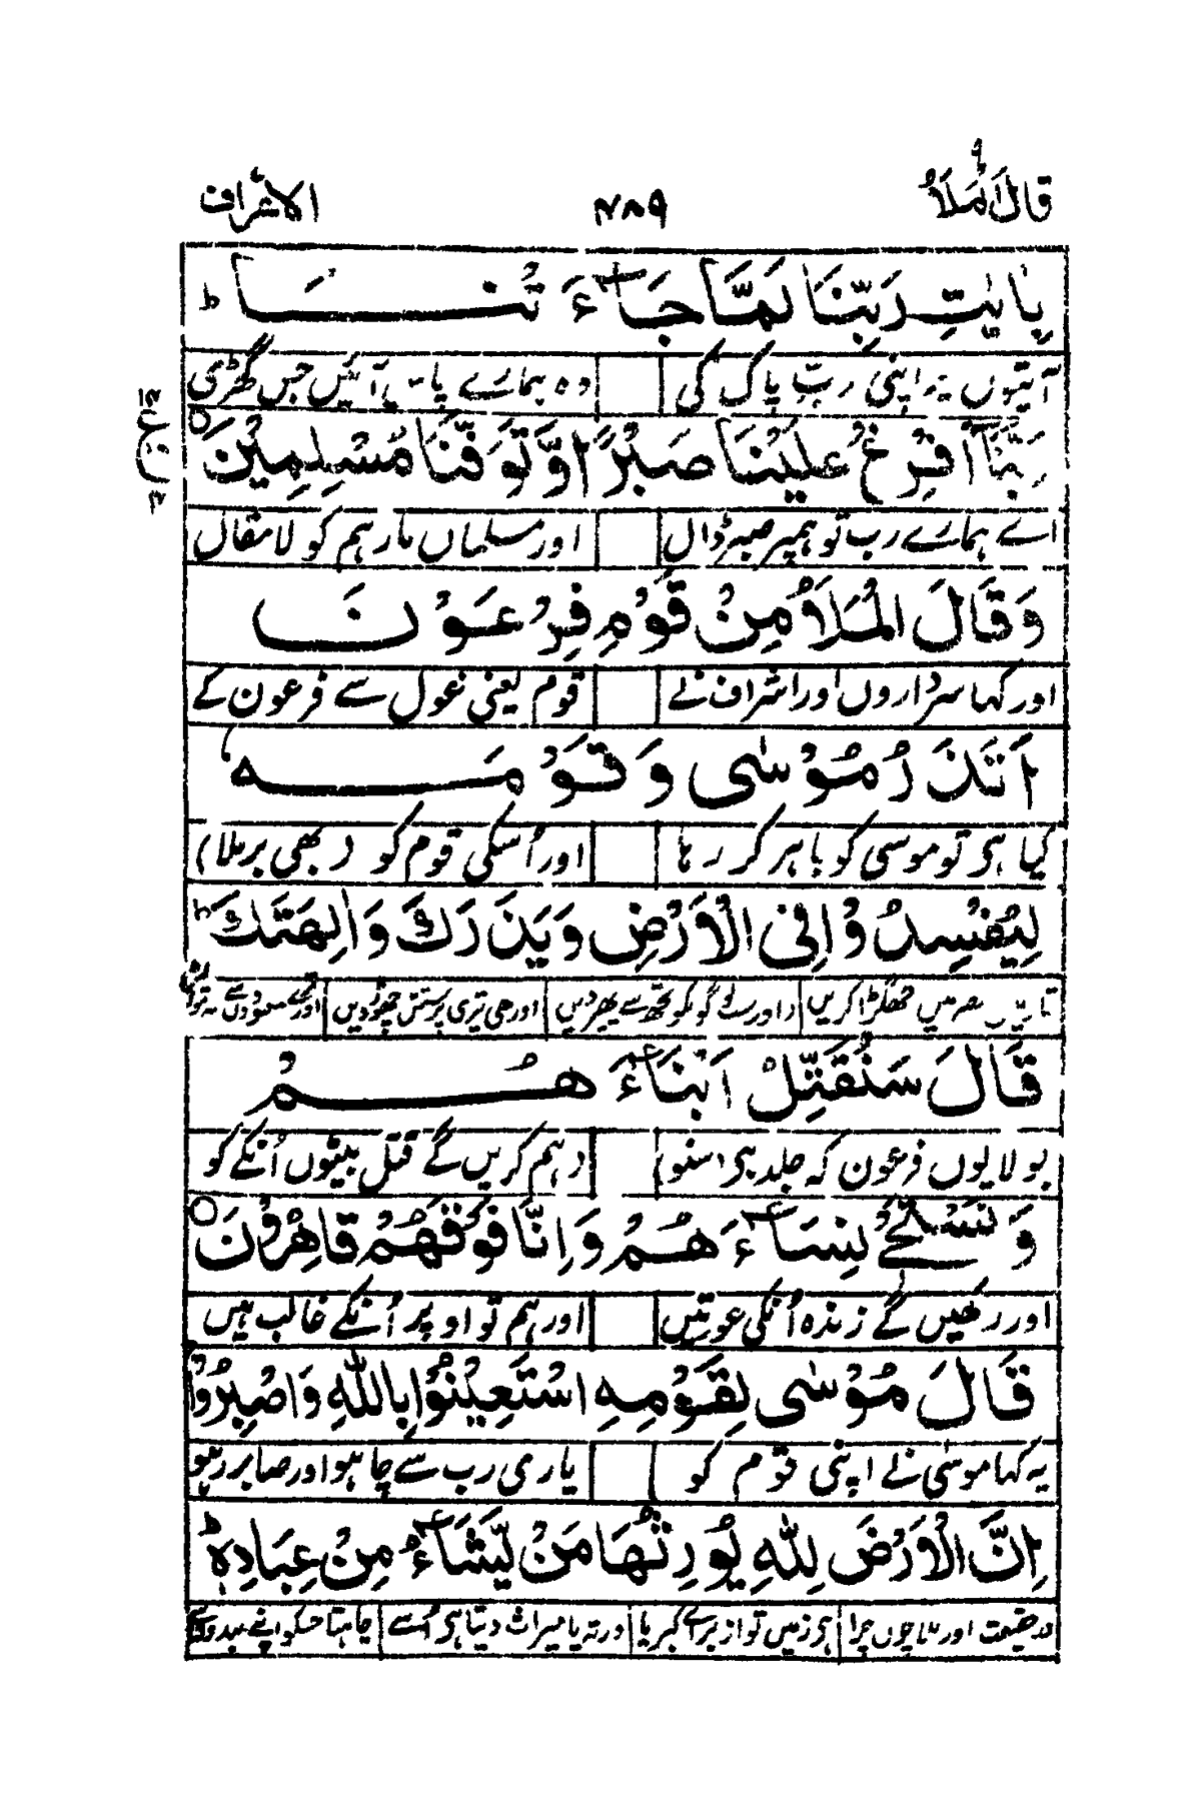 قال الملأ ۹ ۷۸۹ الاعراف
بِاٰيٰتِ رَبِّنَا لَمَّا جَآءَ تْنَا ؕ
آیتوں پہ اپنی ربِّ پاک کی وہ ہمارے پاس آئیں جس گھڑی
رَبَّنَآ اَفْرِغْ عَلَيْنَا صَبْرًا وَّتَوَفَّنَا مُسْلِمِيْنَ ○
اے ہمارے رب تو ہمپر صبر ڈال اور مسلماں مار ہم کو لا مقال
وَقَالَ الْمَلَاُ مِنْ قَوْمِ فِرْعَوْنَ
اور کہا سرداروں اور اشراف نے قوم یعنی غول سے فرعون کے
اَتَذَرُ مُوْسٰى وَقَوْمَهٗ
کیا ہی تو موسیٰ کو باہر کر رہا اور اُسکی قوم کو (بھی برملا)
لِيُفْسِدُوْا فِى الْاَرْضِ وَيَذَرَكَ وَاٰلِهَتَكَ ؕ
مصر میں جھگڑا کریں اور لوگوں کو تجھ سے پھیر دیں اور ہی تیری پرستش چھوڑ دیں
قَالَ سَنُقَتِّلُ اَبْنَآءَ هُمْ
بولا یوں فرعون کہ جلد ہی (سنو) ہم کریں گے قتل بیٹوں اُنکے کو
وَنَسْتَحْيٖ نِسَآءَ هُمْ وَاِنَّا فَوْقَهُمْ قَاهِرُوْنَ ○
اور رکھیں گے زندہ اُنکی عورتیں اور ہم تو اوپر اُنکے غالب ہیں
قَالَ مُوْسٰى لِقَوْمِهِ اسْتَعِيْنُوْا بِاللّٰهِ وَاصْبِرُوْا
یہ کہا موسیٰ نے اپنی قوم کو یاری رب سے چاہو اور صابر رہو
اِنَّ الْاَرْضَ لِلّٰهِ يُوْرِثُهَا مَنْ يَّشَآءُ مِنْ عِبَادِهٖ ؕ
در حقیقت اور بلا چوں چرا ہی زمیں تو از برائے کبریا ورثہ یا میراث دیتا ہی اُسے چاہتا جسکو اپنے